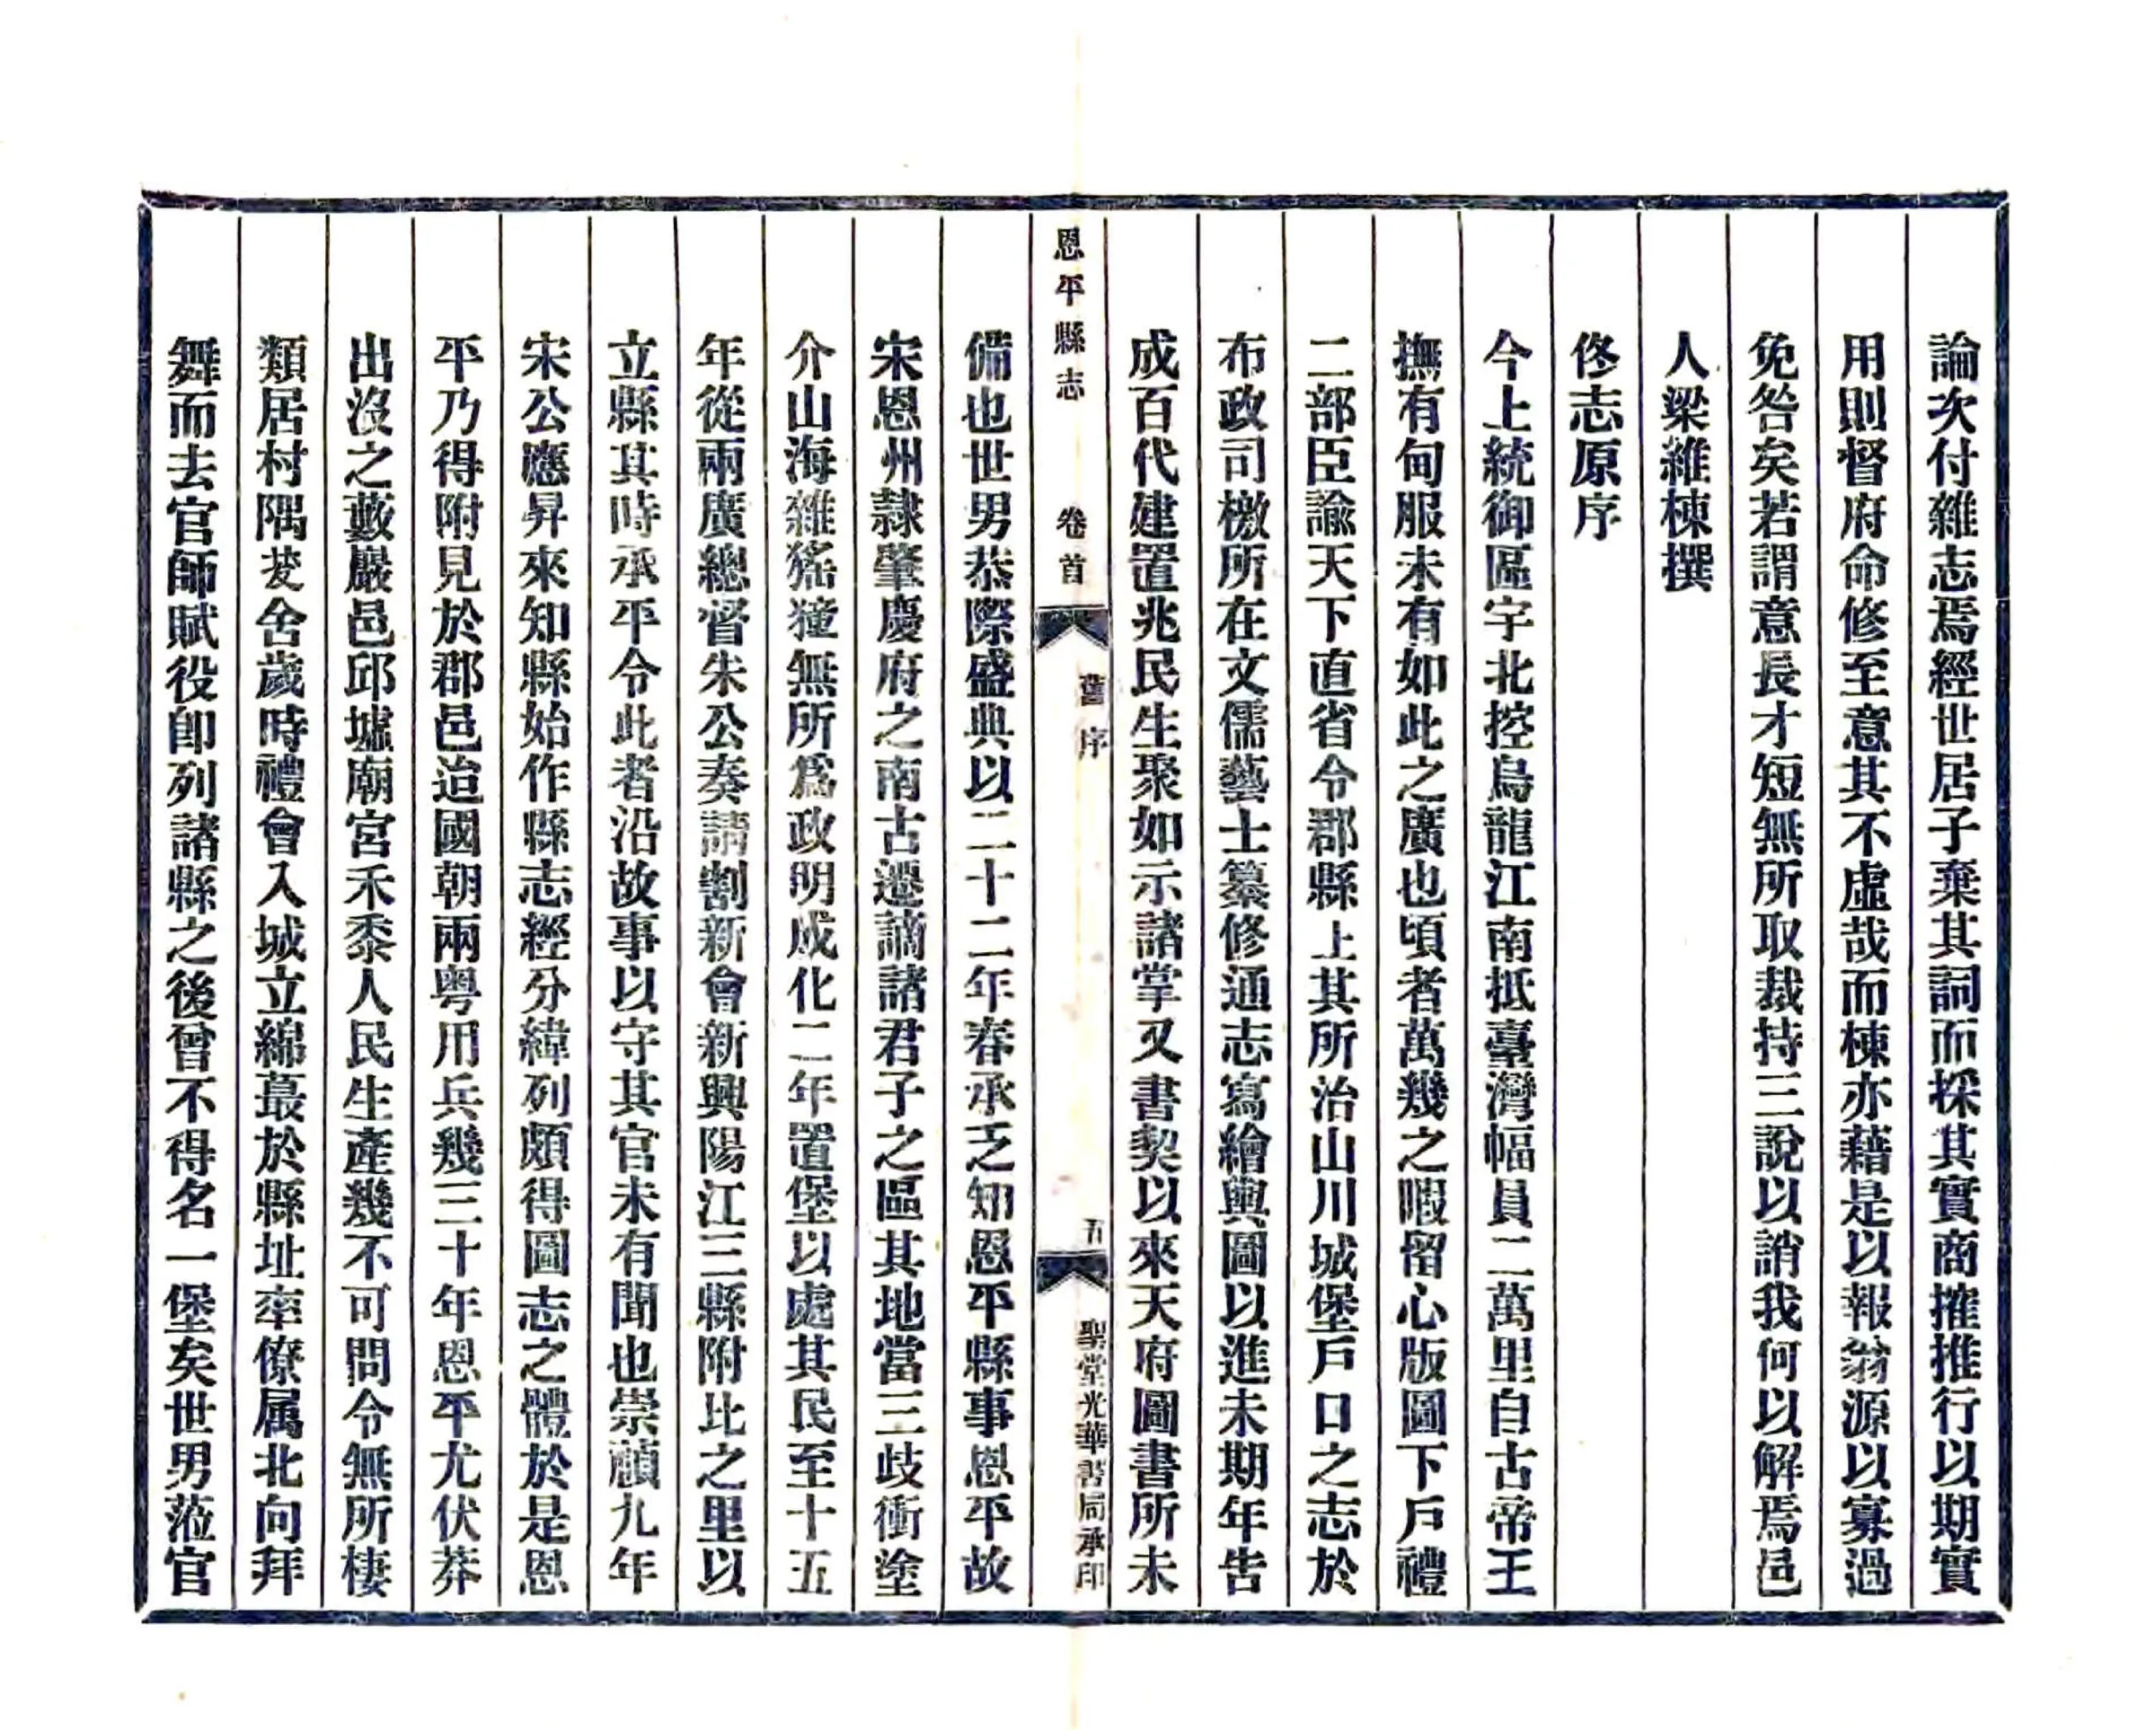 論次付雜志焉經世居子棄其詞而採其實商搉推行以期實
用則督府命修至意其不虛哉而棟亦藉是以報翁源以寡過
免咎矣若謂意長才短無所取裁持三說以誚我何以解焉邑
人梁維棟撰
修志原序
今上統御區宇北控烏龍江南抵臺灣幅員二萬里自古帝王
撫有甸服未有如此之廣也頃者萬幾之暇留心版圖下戶禮
二部臣諭天下直省令郡縣上其所治山川城堡戶口之志於
布政司檄所在文儒藝士纂修通志寫繪輿圖以進未期年告
成百代建置兆民生聚如示諸掌又書契以來天府圖書所未
恩平縣志 卷首 舊序 五 聖堂光華書局承印
備也世男恭際盛典以二十二年春承乏知恩平縣事恩平故
宋恩州隸肇慶府之南古遷謫諸君子之區其地當三歧衝塗
介山海雜猺獞無所爲政明成化二年置堡以處其民至十五
年從兩廣總督朱公奏請割新會新興陽江三縣附比之里以
立縣其時承平令此者沿故事以守其官未有聞也崇禎九年
宋公應昇來知縣始作縣志經分緯列頗得圖志之體於是恩
平乃得附見於郡邑迨國朝兩粤用兵幾三十年恩平尤伏莽
出沒之藪巖邑邱墟廟宮禾黍人民生產幾不可問令無所棲
類居村隅茇舍歲時禮會入城立綿蕞於縣址率僚属北向拜
舞而去官師賦役卽列諸縣之後曾不得名一堡矣世男蒞官